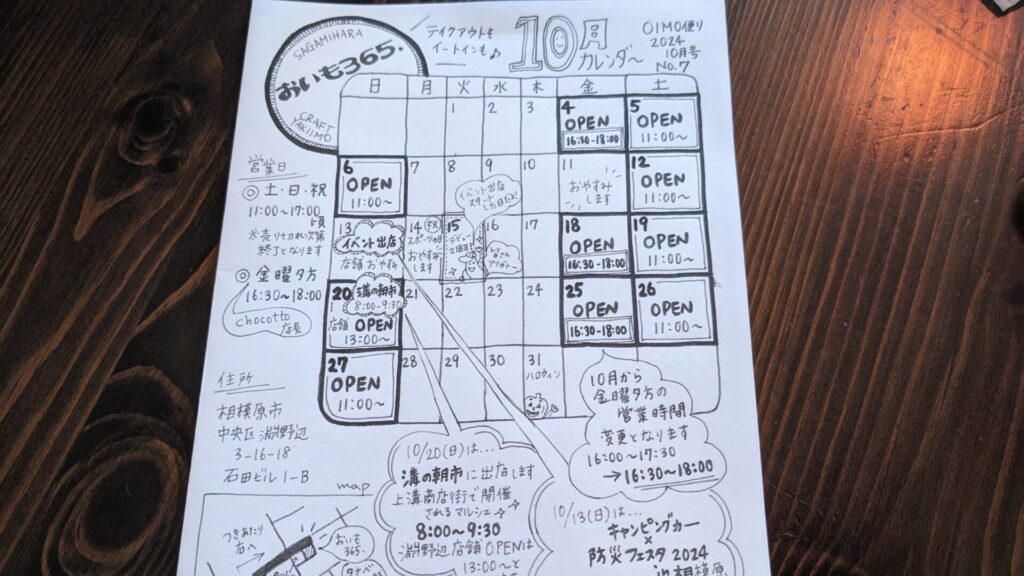 SAGAMIHARA
おいも365.
CRAFT
YAKIIMO
テイクアウトも
イートインも♪
10月
カレンダ〜
OIMO便り
2024
10月号
No.7
日 月 火 水 木 金 土
1 2 3
4
OPEN
16:30-18:00
5
OPEN
11:00〜
6
OPEN
11:00〜
7 8 9 10
11
おやすみ
します
12
OPEN
11:00〜
イベント出店
スタート
した日だよ!
13
イベント出店
店舗おやすみ
14 祝
スポーツの日
おやすみ
します
15
デビュー
16
みなさん
アリガトー
17
18
OPEN
16:30-18:00
19
OPEN
11:00〜
20
溝の朝市
8:00-9:30
店舗 OPEN
13:00〜
21 22 23 24
25
OPEN
16:30-18:00
26
OPEN
11:00〜
27
OPEN
11:00〜
28 29 30 31
ハロウィン
営業日
◎ 土・日・祝
11:00〜17:00
頃
※売りきれ次第
終了となります
◎ 金曜夕方
16:30〜18:00
chocotto
店長
住所
相模原市
中央区 淵野辺
3-16-18
石田ビル1-B
map
つきあたり
右へ
おいも
365.
10月から
金曜夕方の
営業時間
変更となります
16:00〜17:30
→16:30〜18:00
10/20(日)は…
溝の朝市に出店します
上溝商店街で開催
されるマルシェ
8:00〜9:30
淵野辺店舗OPENは
13:00〜と
10/13(日)は…
キャンピングカー
×
防災フェスタ2024
in相模原